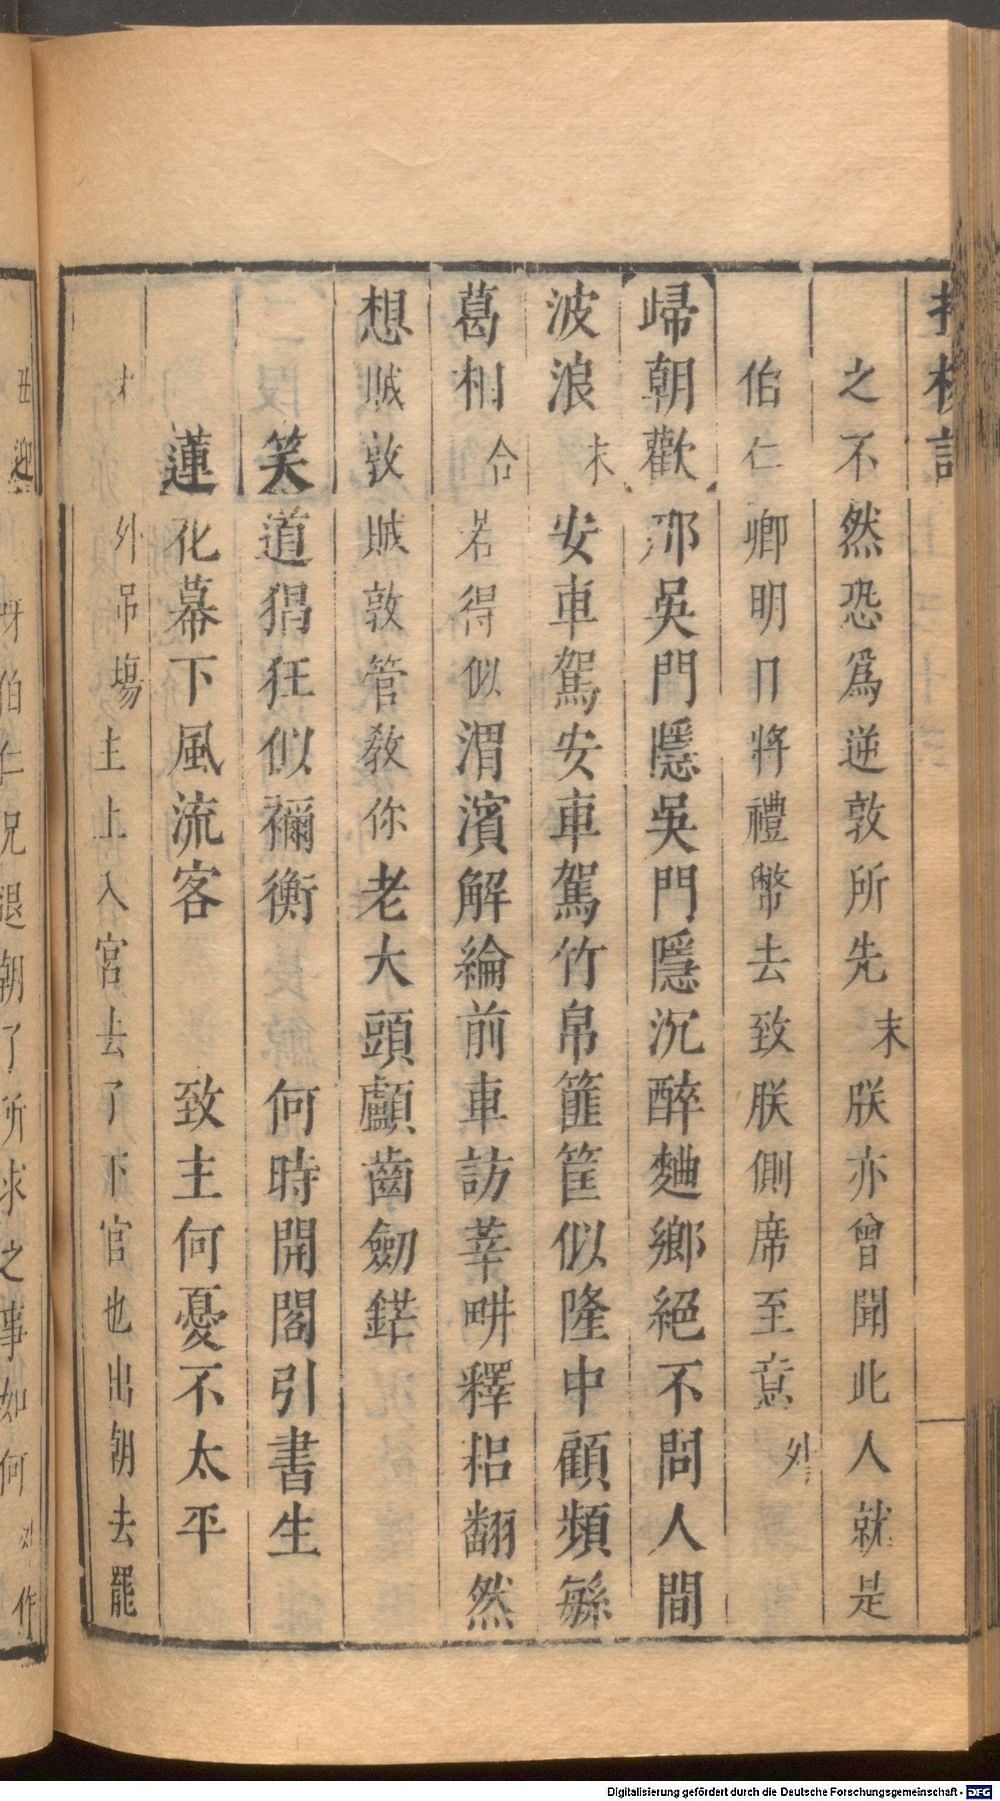 之不然恐爲逆敦所先末朕亦曾聞此人就是
伯仁卿明日將禮幣去致朕側席至意外
歸朝歡 那吳門隱吳門隱沉醉麯鄉絕不問人間
波浪末安車駕安車駕竹帛篚筐似隆中顧頻繇
葛相合若得似渭濱解綸前車訪莘畊釋耜翻然
想賊敦賊敦管教你老大頭顱齒劒鋩
笑道猖狂似禰衡 何時開閣引書生
蓮化幕下風流客 致主何憂不太平
外吊塲主上入宮去了下官也出朝去罷
丑
迎
伯仁兄退朝了所求之事如何
作
Digitalisierung gefördert durch die Deutsche Forschungsgemeinschaft - DFG